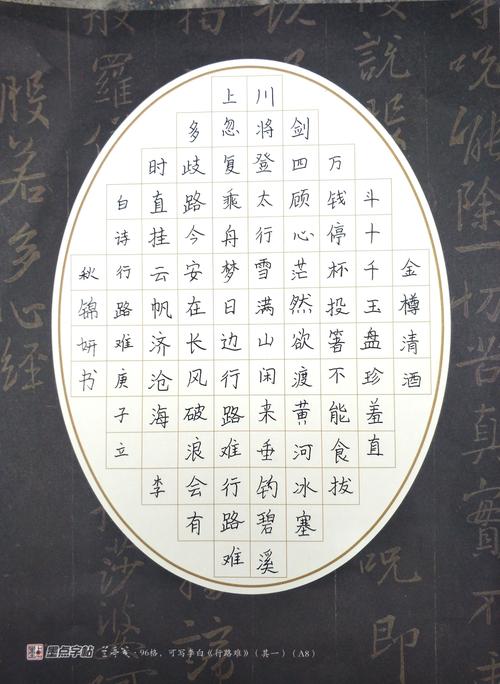 金樽清酒
斗十千玉盘珍羞直
万钱停杯投箸不能食拔
剑四顾心茫然欲渡黄河冰塞
川将登太行雪满山闲来垂钓碧溪
上忽复乘舟梦日边行路难行路难
多歧路今安在长风破浪会有
时直挂云帆济沧海 李
白诗行路难庚子立
秋锦妍书
墨点字帖 ·96格，可写李白《行路难》（其一）（A8）
能除一切苦真
般若多心經